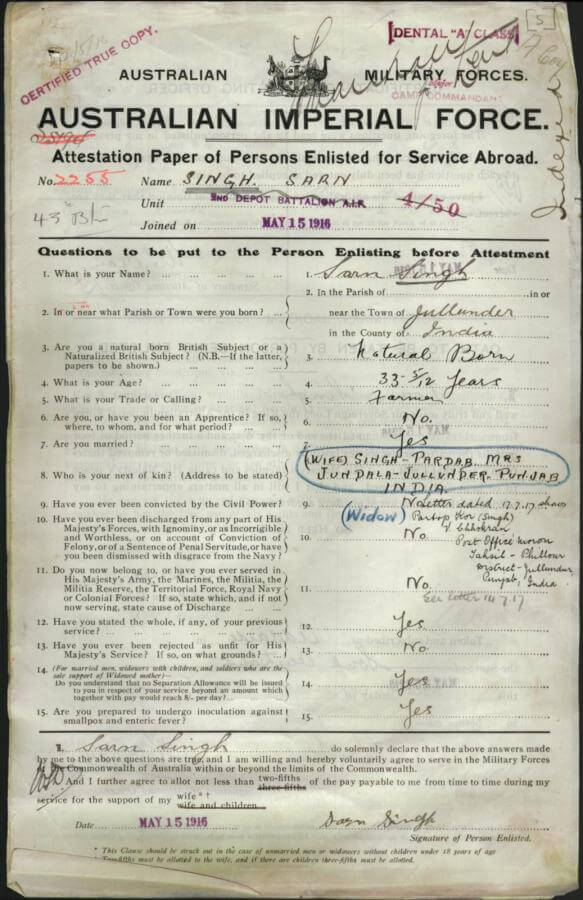 CERTIFIED TRUE COPY.
DENTAL "A" CLASS
5
AUSTRALIAN MILITARY FORCES.
Major
CAMP COMMANDANT
AUSTRALIAN IMPERIAL FORCE.
Attestation Paper of Persons Enlisted for Service Abroad.
Indexed
No. 2255 Name SINGH. SARN
Unit 2ND DEPOT BATTALION A.I.F. 4/50
43rd Bn
Joined on MAY 15 1916
Questions to be put to the Person Enlisting before Attestment
1. What is your Name? 1. Sarn Singh
2. In or near what Parish or Town were you born? 2. In the Parish of in or
near the Town of Jullunder
in the County of India
3. Are you a natural born British Subject or a
Naturalized British Subject? (N.B.—If the latter,
papers to be shown.) 3. Natural Born
4. What is your Age? 4. 33 5/12 Years
5. What is your Trade or Calling? 5. Farmer
6. Are you, or have you been an Apprentice? If so,
where, to whom, and for what period? 6. No.
7. Are you married? 7. Yes
8. Who is your next of kin? (Address to be stated) 8. (WIFE) SINGH - PARDAB. MRS
JUNDALA - JULLUNDER - PUNJAB
INDIA.
9. Have you ever been convicted by the Civil Power? 9. No
letter dated 17.7.17
(Widow)
(Singh)
10. Have you ever been discharged from any part of His
Majesty's Forces, with Ignominy, or as Incorrigible
and Worthless, or on account of Conviction of
Felony, or of a Sentence of Penal Servitude, or have
you been dismissed with disgrace from the Navy? 10. No.
Post Office
Tahsil - Phillour
District - Jullundur
Punjab, India
11. Do you now belong to, or have you ever served in
His Majesty's Army, the Marines, the Militia, the
Militia Reserve, the Territorial Force, Royal Navy
or Colonial Forces? If so, state which, and if not
now serving, state cause of Discharge 11. No.
See letter
12. Have you stated the whole, if any, of your previous
service? 12. Yes
13. Have you ever been rejected as unfit for His
Majesty's Service? If so, on what grounds? 13. No.
14. (For married men, widowers with children, and soldiers who are the
sole support of Widowed mother)—
Do you understand that no Separation Allowance will be issued
to you in respect of your service beyond an amount which
together with pay would reach 8/- per day? 14. Yes
15. Are you prepared to undergo inoculation against
smallpox and enteric fever? 15. Yes
I, Sarn Singh do solemnly declare that the above answers made
by me to the above questions are true, and I am willing and hereby voluntarily agree to serve in the Military Forces
of the Commonwealth of Australia within or beyond the limits of the Commonwealth.
And I further agree to allot not less than two-fifths three-fifths of the pay payable to me from time to time during my
service for the support of my wife*† wife and children
Date MAY 15 1916 Sarn Singh
Signature of Person Enlisted.
* This Clause should be struck out in the case of unmarried men or widowers without children under 18 years of age
† Two-fifths must be allotted to the wife, and if there are children three-fifths must be allotted.